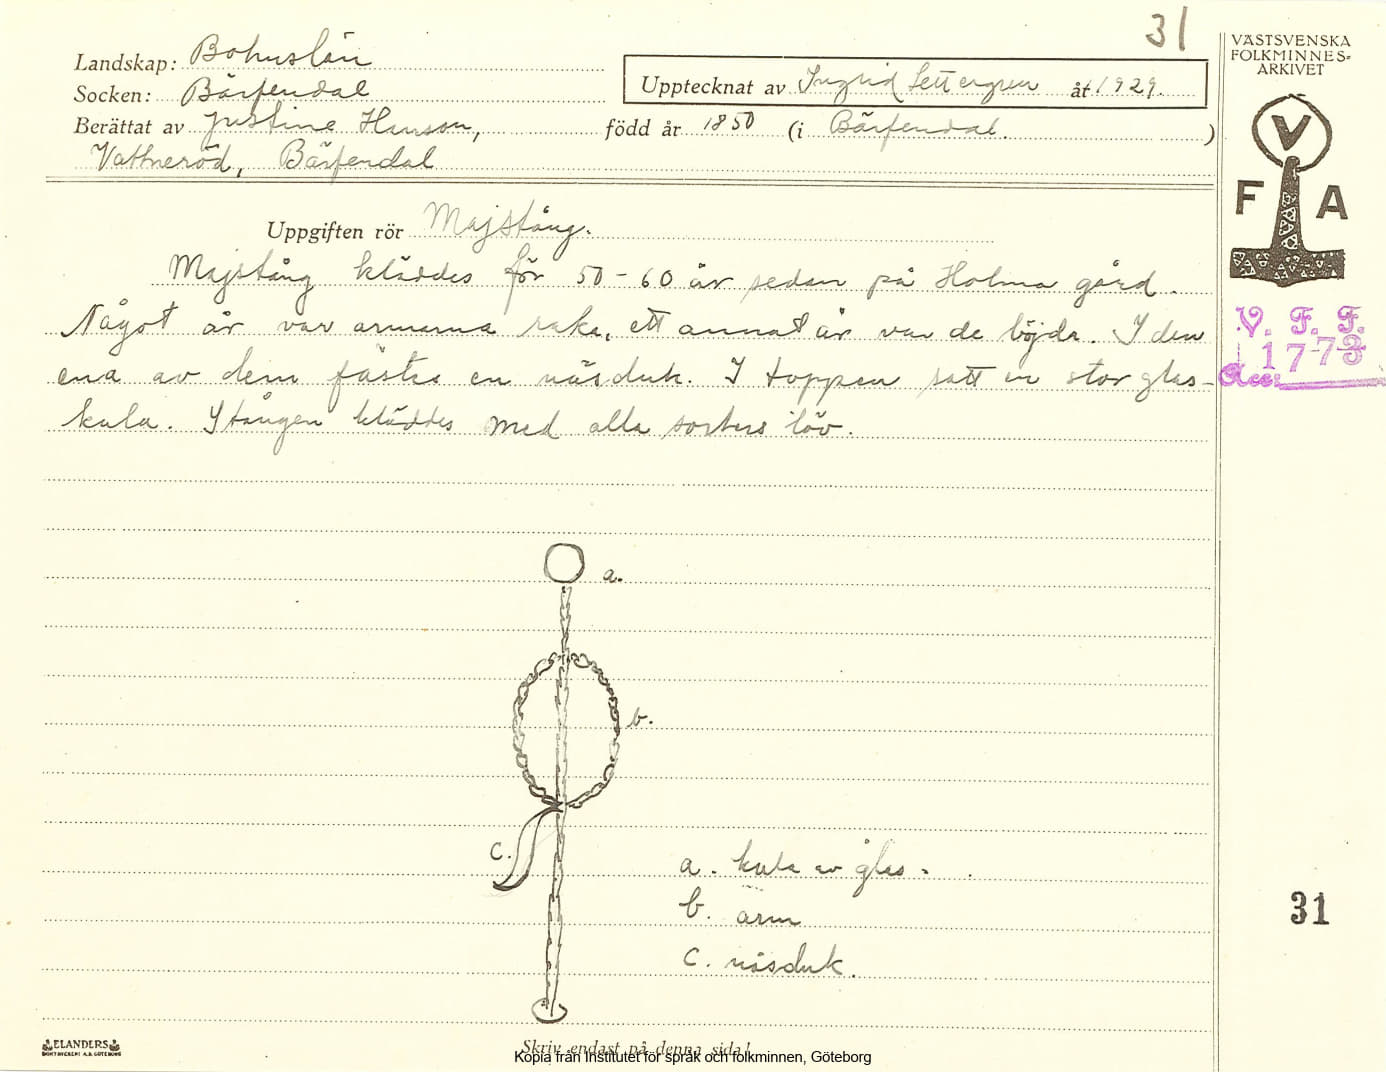 31
Landskap: Bohuslän
Socken: Bärfendal
Upptecknat av Ingrid Settergren år 1929.
Berättat av Justine Hanson, född år 1850 (i Bärfendal.)
Vattneröd, Bärfendal
Uppgiften rör Majstång.
Majstång kläddes för 50-60 år sedan på Holma gård.
Något år var armarna raka, ett annat år var de böjda. I den
ena av dem fästes en näsduk. I toppen satt en stor glas-
kula. Stången kläddes med alla sorters löv.
a.
b.
c.
a. kula av glas.
b. arm
c. näsduk.
ELANDERS
BOKTRYCKERI A.B. GÖTEBORG
Skriv endast på denna sida!
Kopia från Institutet för språk och folkminnen, Göteborg
VÄSTSVENSKA
FOLKMINNES-
ARKIVET
V
F A
V. F. F.
1773
Acc:
31